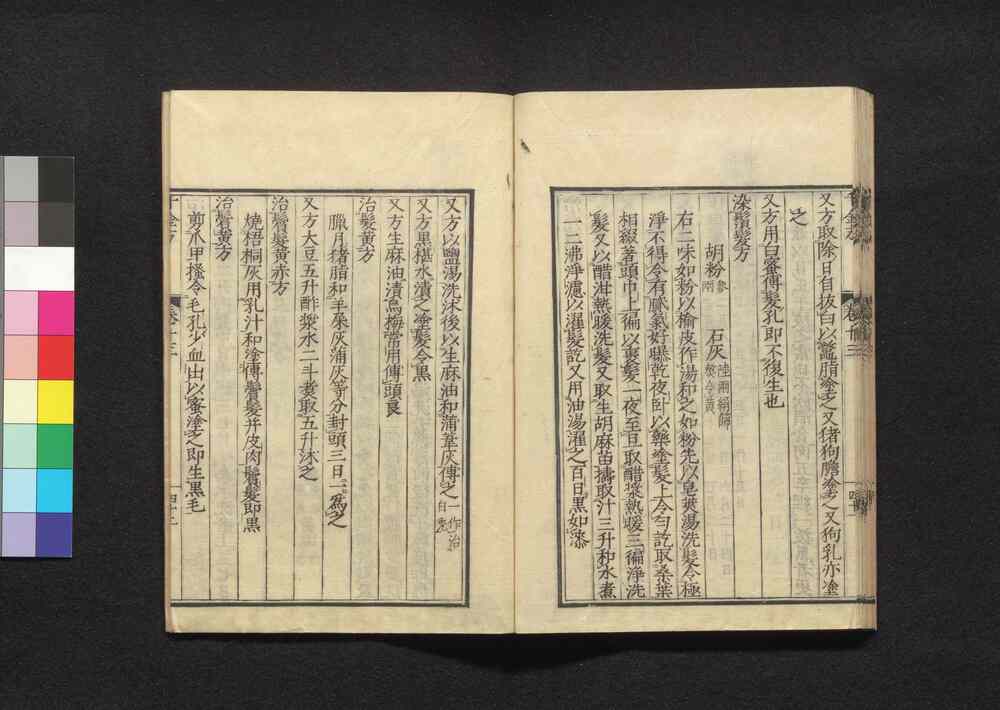 又方取除日自拔白以鼈脂塗之又猪狗膽塗之又狗乳亦塗
之
又方用白蜜傅髮孔即不復生也
染鬚髮方
胡粉 石灰
右二味如粉以榆皮作湯和之如粉先以皂莢湯洗髮令極
淨不得令有膩氣好曝乾夜臥以藥塗髮上令勻訖取桑葉
相綴著頭巾上遍以裹髮一夜至旦取醋漿熱暖三遍淨洗
髮又以醋泔熱暖洗髮又取生胡麻苗擣取汁三升和水煮
一二沸淨濾以濯髮訖又用油湯濯之百日黑如漆
又方以鹽湯洗沐後以生麻油和蒲葦灰傅之一作治白禿
又方黑椹水漬之塗髮令黑
又方生麻油漬烏梅常用傅頭良
治髮黃方
臘月猪脂和羊屎灰蒲灰等分封頭三日一為之
又方大豆五升酢漿水二斗煮取五升沐之
治鬢髮黃赤方
燒梧桐灰用乳汁和塗傅鬢髮并皮肉鬢髮即黑
治鬢黃方
剪爪甲搔令毛孔少血出以蜜塗之即生黑毛